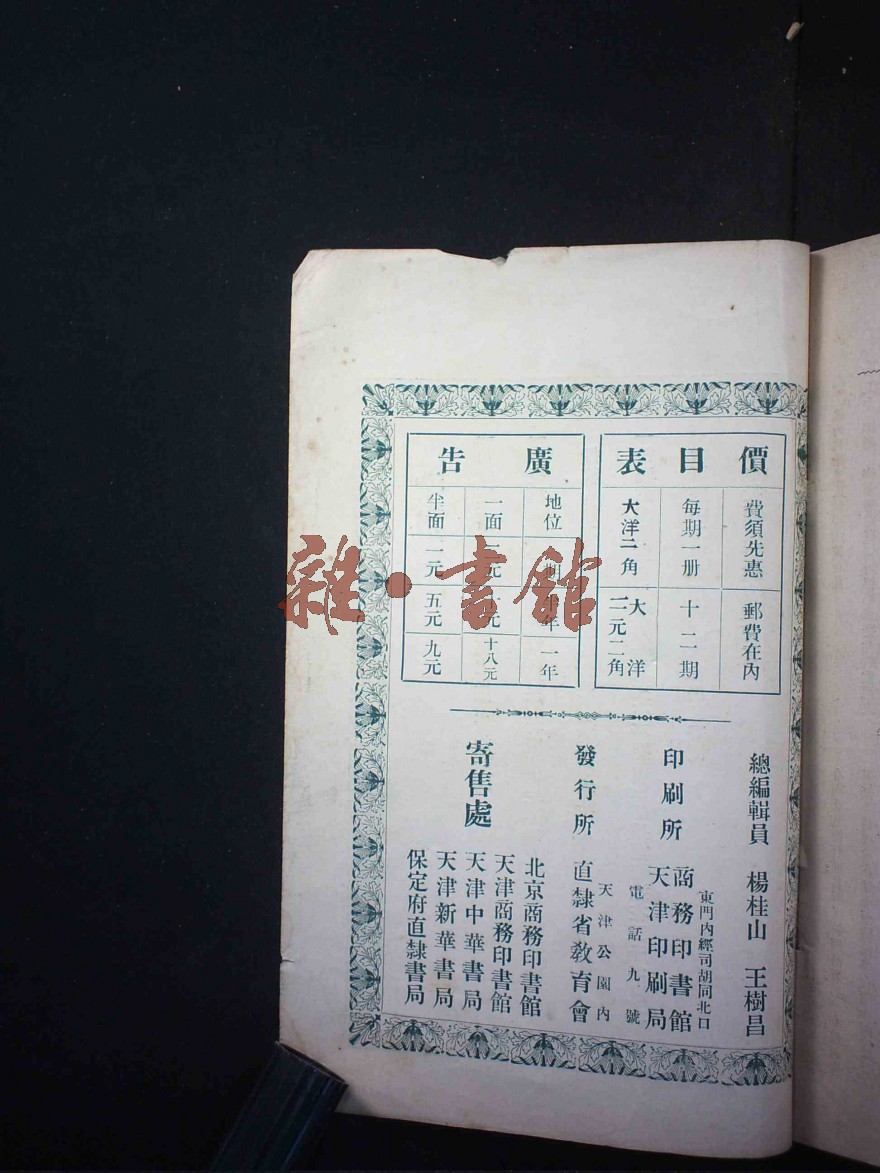 價目表
費須先惠 郵費在內
每期一册 十二期
大洋二角 大洋二元二角
廣告
地位 半年 一年
一面 十八元
半面 一元 五元 九元
總編輯員 楊桂山 王樹昌
印刷所
東門內經司胡同北口
商務印書館
天津印刷局
電話九號
發行所
天津公園內
直隸省教育會
寄售處
北京商務印書館
天津商務印書館
天津中華書局
天津新華書局
保定府直隸書局
雜·書館